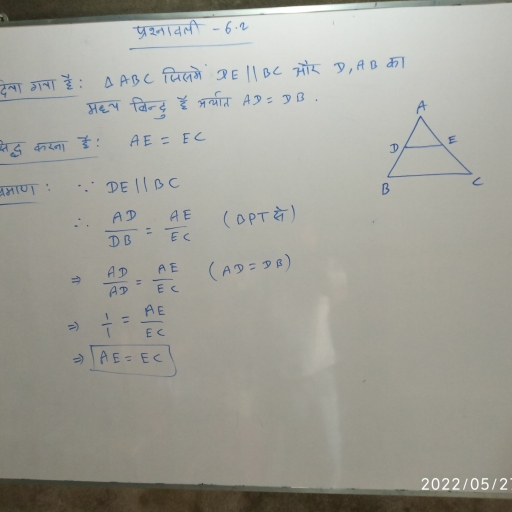 प्रश्नावली - 6.2
दिया गया है: Δ ABC जिसमें DE || BC और D, AB का
मध्य बिन्दु है अर्थात AD = DB.
सिद्ध करना है: AE = EC
प्रमाण: ∵ DE || BC
∴ AD/DB = AE/EC (BPT से)
⇒ AD/AD = AE/EC (AD = DB)
⇒ 1/1 = AE/EC
⇒ AE = EC
A
D E
B C
2022/05/27